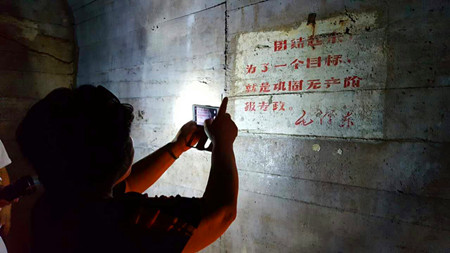 团结起来
为了一个目标，
就是巩固无产阶
级专政。
毛泽东